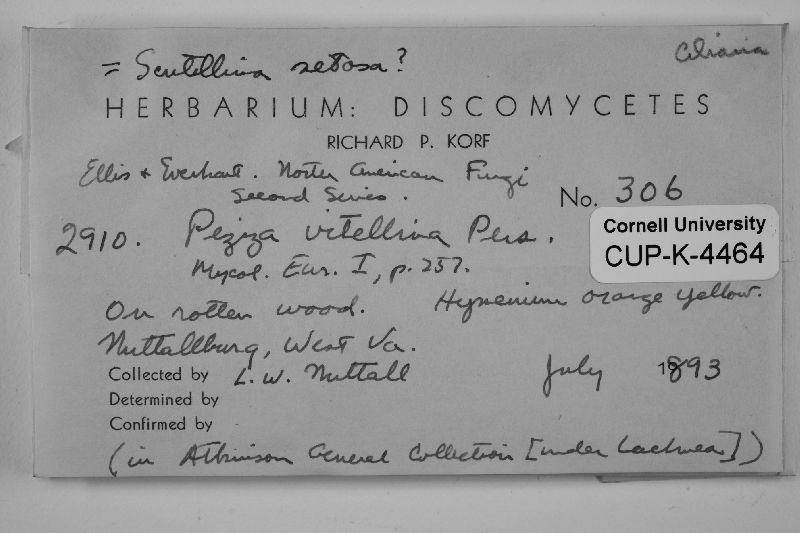 Ciliaria
= Scutellinia setosa?
HERBARIUM: DISCOMYCETES
RICHARD P. KORF
Ellis & Everhart. North American Fungi
Second Series.
No. 306
2910. Peziza vitellina Pers.
Cornell University
CUP-K-4464
Mycol. Eur. I, p. 257.
On rotten wood. Hymenium orange yellow.
Nuttallburg, West Va.
Collected by L. W. Nuttall July 1893
Determined by
Confirmed by
(in Atkinson General Collection [under Lachnea])